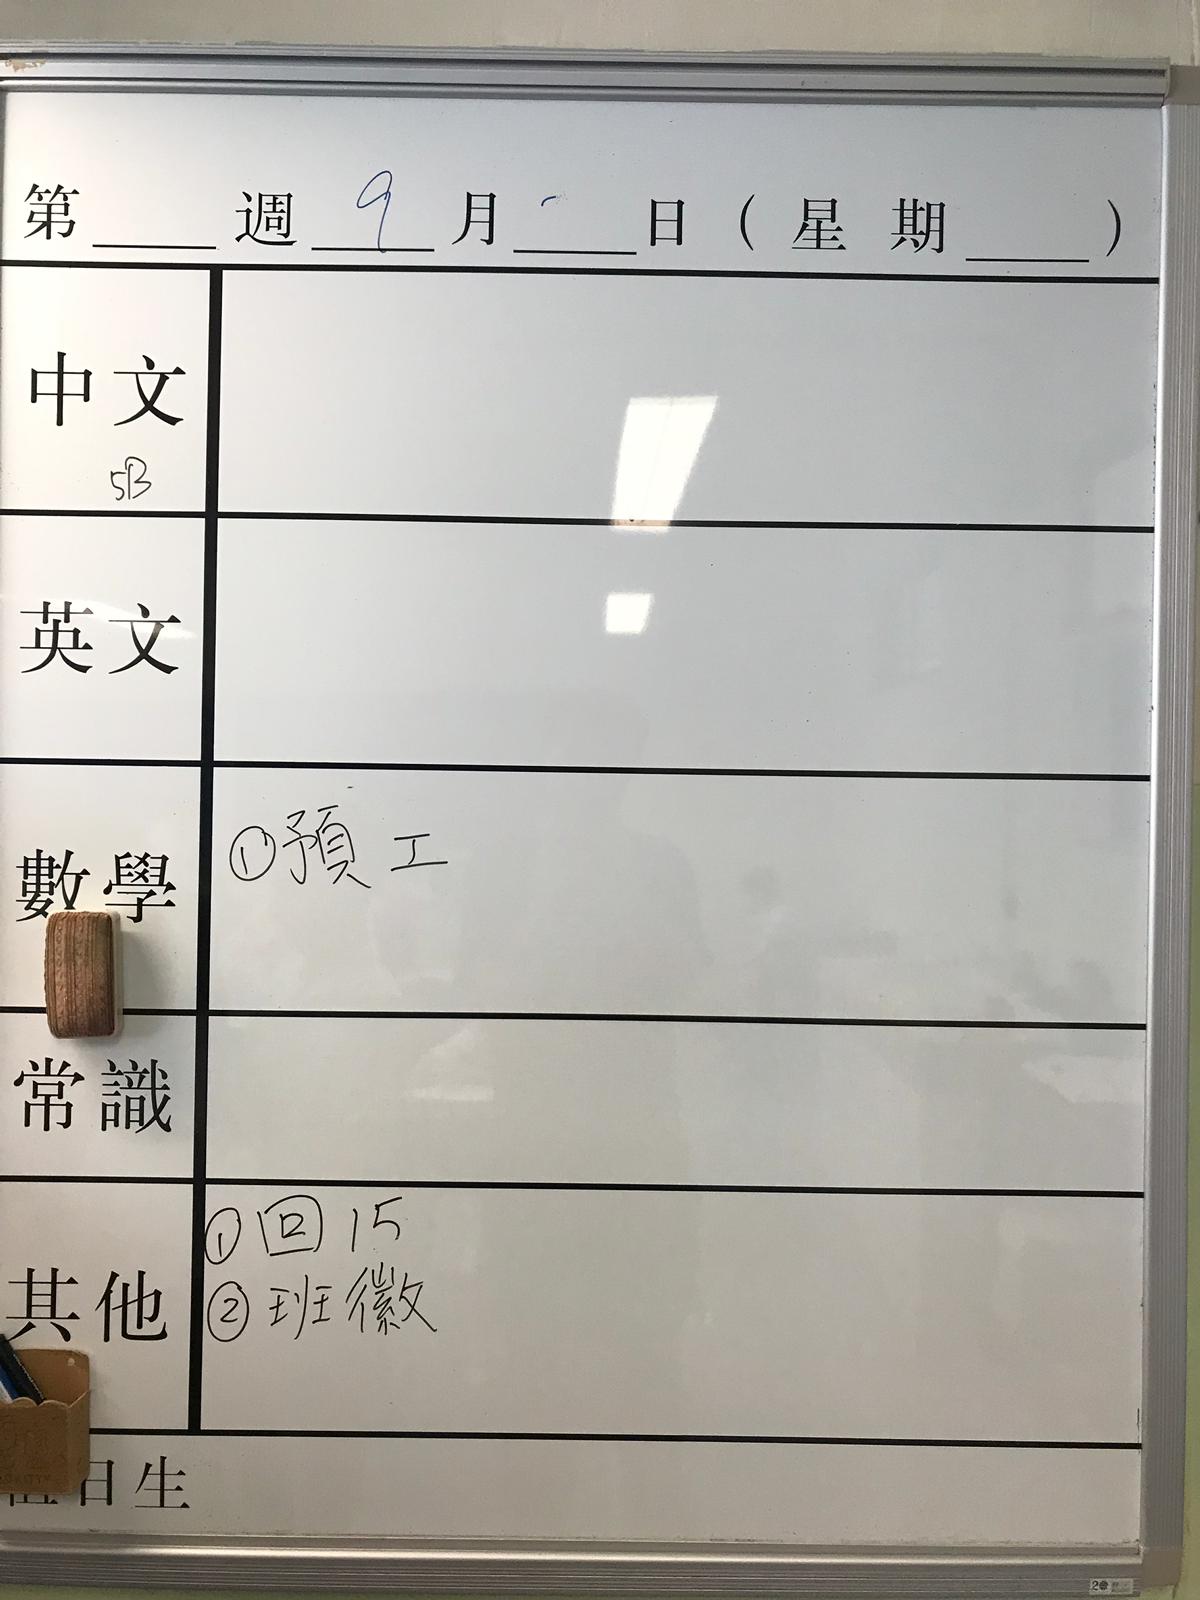 第 週 9 月 日 ( 星期 )
中文
5B
英文
數學
① 預 工
常識
其他
① 回 15
② 班徽
值日生